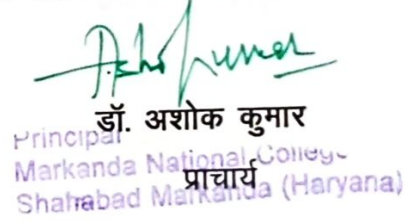 Ashokumar
डॉ. अशोक कुमार
Principal
Markanda National College
प्राचार्य
Shahabad Markanda (Haryana)